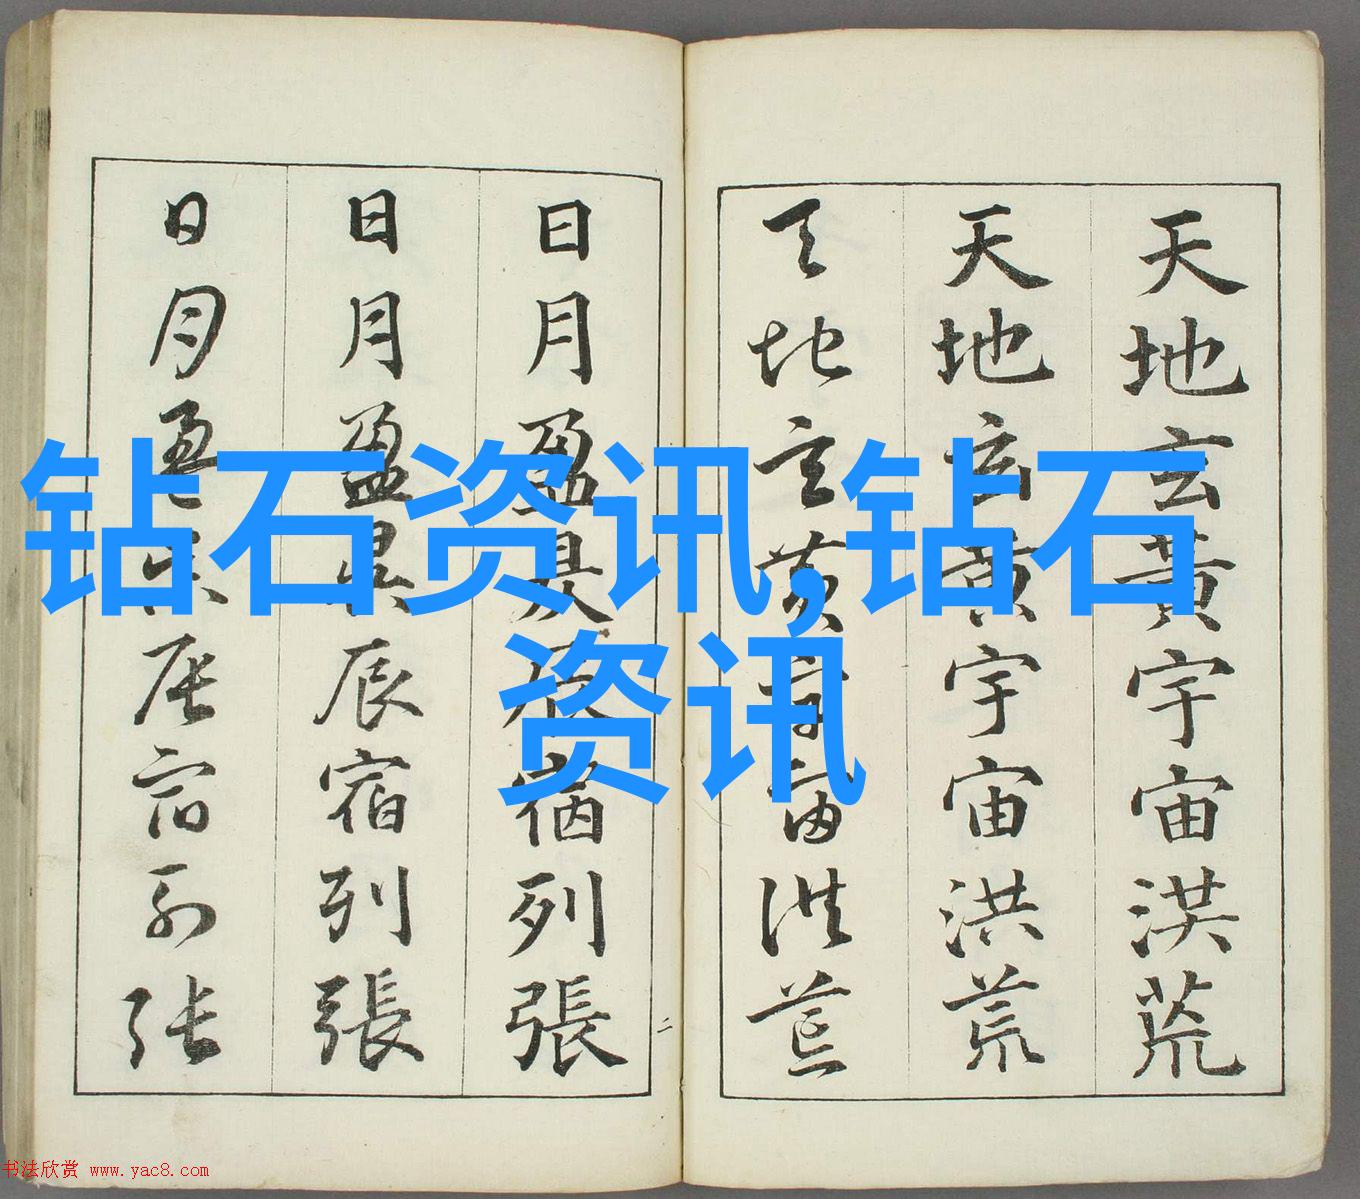 天地玄黃宇宙洪荒
天地玄黃宇宙洪荒
天地玄黃宇宙洪荒
日月盈昃辰宿列張
日月盈昃辰宿列張
日月盈昃辰宿列張
二
钻石资讯,钻石
资讯
书法欣赏 www.yac8.com